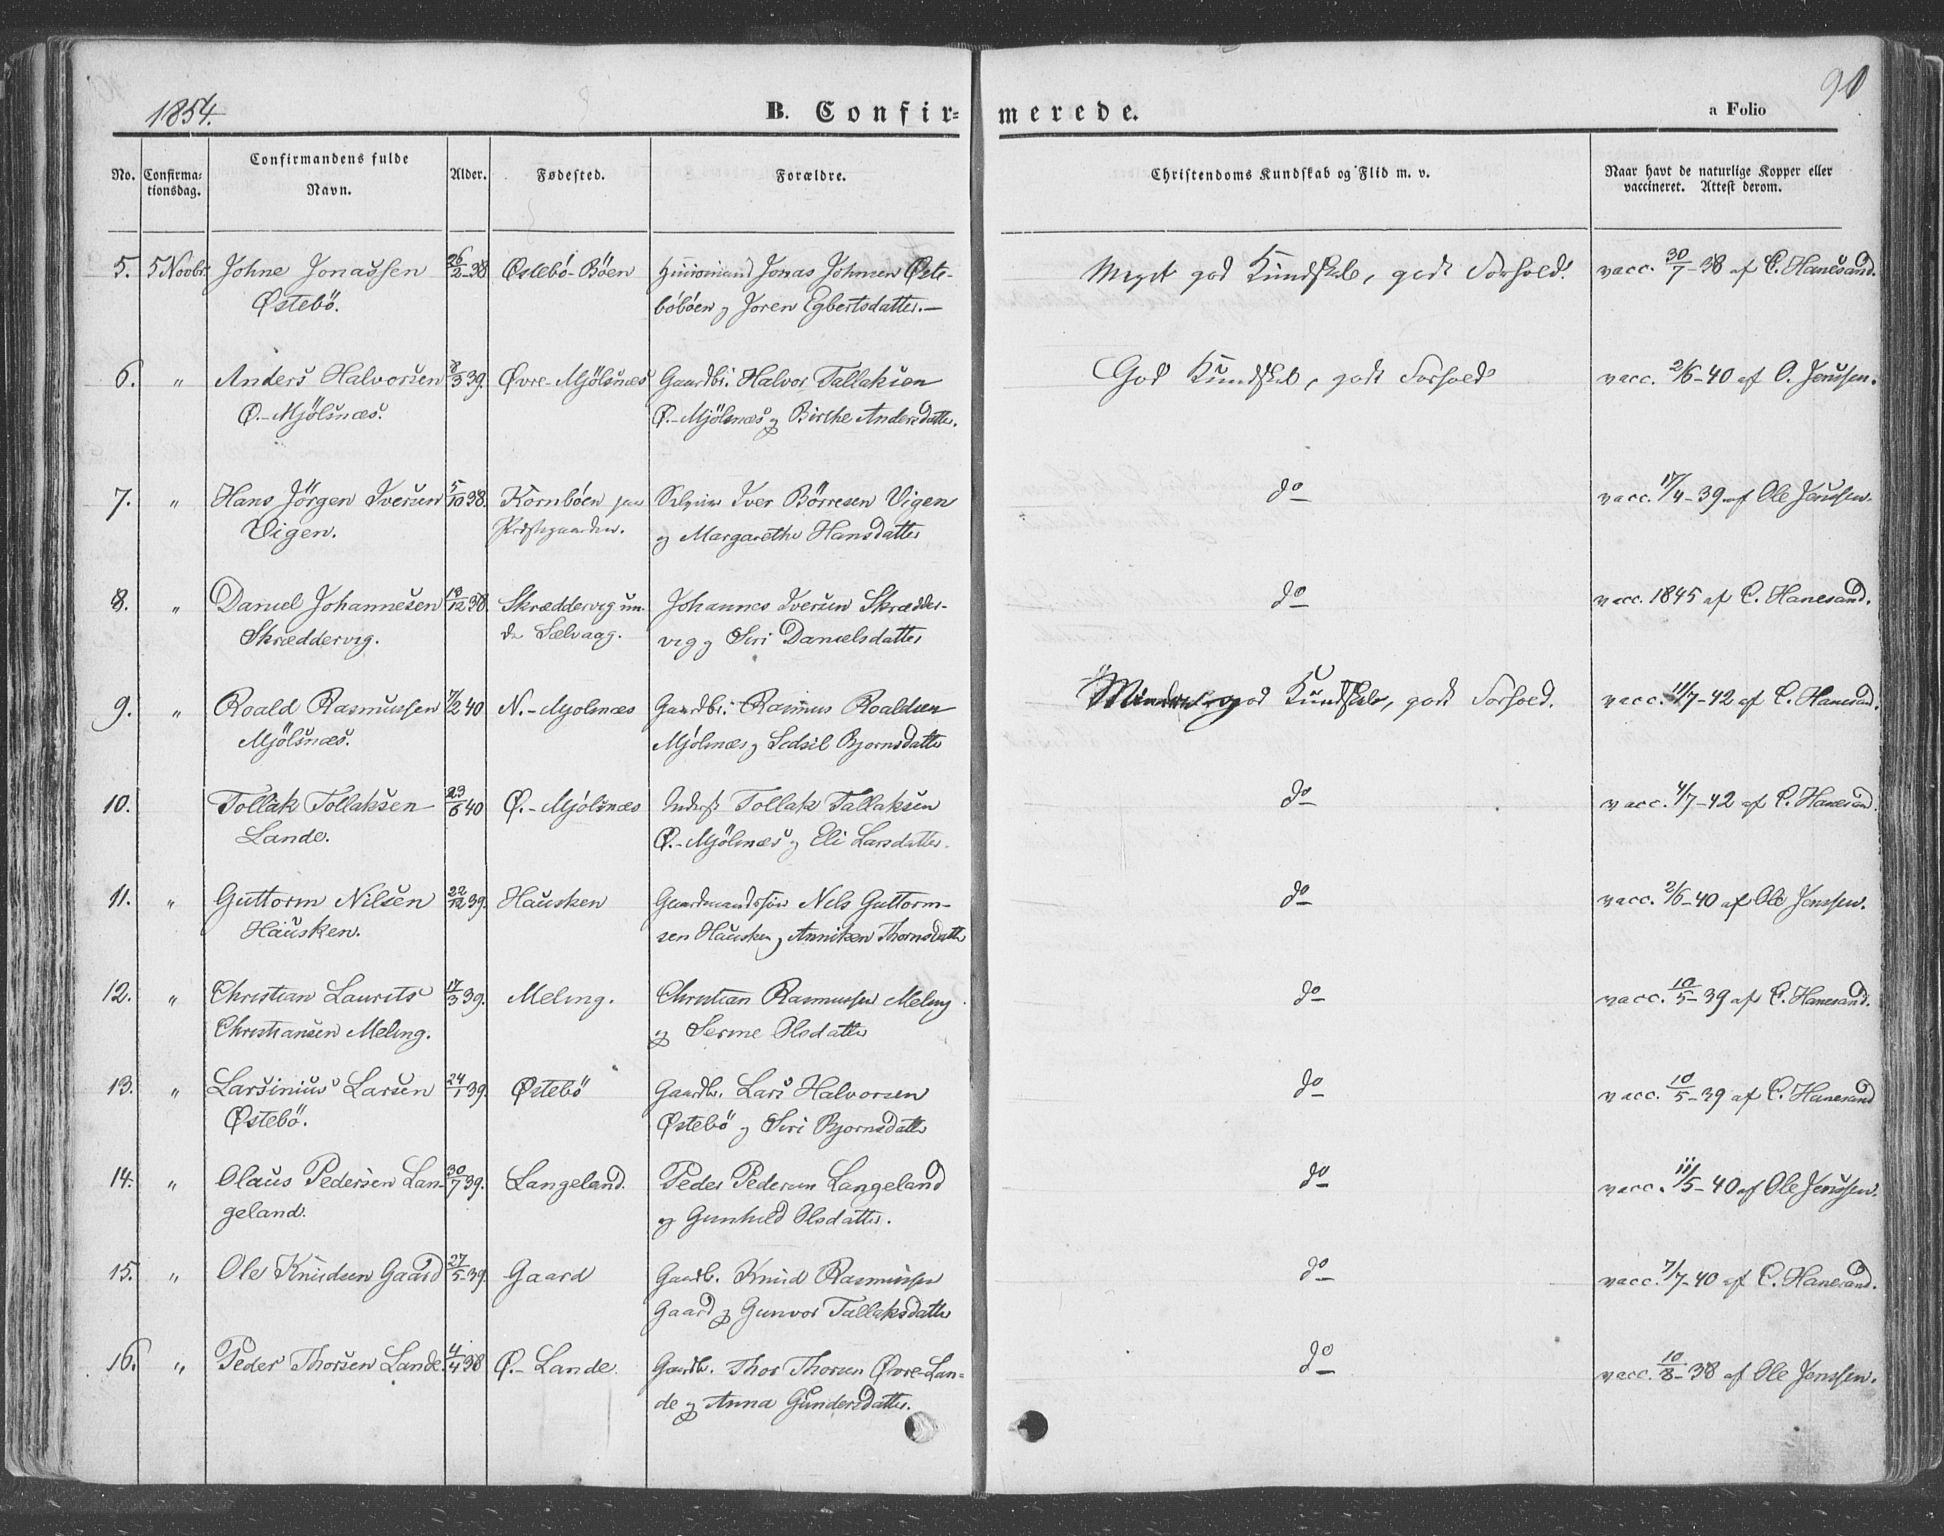 1854.
B. Confir-
merede.
a Folio
90
No.
Confirma-
tionsdag.
Confirmandens fulde
Navn.
Alder.
Fødested.
Forældre.
Christendoms Kundskab og Flid m. v.
Naar havt de naturlige Kopper eller
vaccineret. Attest derom.
5. 5 Novbr. Johne Jonassen 26/2-38 Østebö-Böen Jonas Johnsen Øste- Meget god Kundskab, godt Forhold. vacc. 30/7-38 af C. Hanesand.
Østebö. böböen og Joren Egbertsdatter.—
6. " Anders Halvorsen 8/3 39. Øvre-Mjölsnæs Gaardbr. Halvor Tallaksen God Kundskab, godt Forhold vacc. 2/6-40 af O. Jenssen.
Ø.-Mjölsnæs. Ø.-Mjölsnæs og Birthe Andersdatter.
7. " Hans Jörgen Iversen 5/10 38. Kornböen paa Iver Börresen Vigen do vacc. 17/4-39 af Ole Jenssen.
Vigen. Præstegaarden. og Margarethe Hansdatter
8. " Daniel Johannesen 13/12 38. Skræddervig un- Johannes Iversen Skrædder- do vacc. 1845 af C. Hanesand.
Skræddervig. der Sælvaag. vig og Siri Danielsdatter
9. " Roald Rasmussen 7/2 40 N.-Mjolsnæs Gaardbr. Rasmus Roaldsen god Kundskab, godt Forhold. vacc. 11/7-42 af C. Hanesand.
Mjölsnæs. Mjölsnæs og Sedsil Bjornsdatter
10. Tollak Tollaksen 23/6 40 Ø.-Mjölsnæs Inderst Tollak Tallaksen do vacc. 4/7-42 af C. Hanesand.
Lande. Ø.-Mjölsnæs og Eli Larsdatter.
11. " Guttorm Nilsen 22/12 39. Hausken Gaardmandssön Nels Guttorm- do vacc. 2/6-40 af Ole Jenssen.
Hausken. sen Hausken og Anniken Thornsdatter
12. " Christian Laurits 17/3 39. Meling. Christian Rasmussen Meling do vacc. 10/5-39 af C. Hanesand.
Christiansen Meling. og Serine Olsdatter
13. " Larsinius Larsen 24/1 39. Østebö Gaardbr. Lars Halvorsen do vacc. 10/5-39 af C. Hanesand
Østebö. Østebö og Siri Bjornsdatter
14. " Olaus Pedersen Lan- 30/7 39. Langeland. Peder Pedersen Langeland do vacc. 11/5-40 af Ole Jenssen.
geland. og Gunhild Olsdatter.
15. " Ole Knudsen Gaard 27/5-39. Gaard Gaardbr. Knud Rasmussen do vacc. 7/7-40 af C. Hanesand.
Gaard og Gunvor Tallaksdatter
16. " Peder Thorsen Lande. 4/4 38 Ø.-Lande. Gaardbr. Thor Thorsen Øvre-Lan- do vacc. 10/8-38 af Ole Jenssen.
de og Anna Gundersdatter.